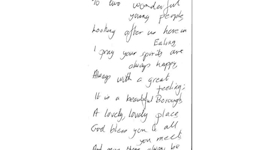 To two wonderful
young people,
Looking after us here in
Ealing
I pray your spirits are
always happy,
Always with a great
feeling;
It is a beautiful Borough
A lovely, lovely place
God bless you to all
you meet
And may there always be